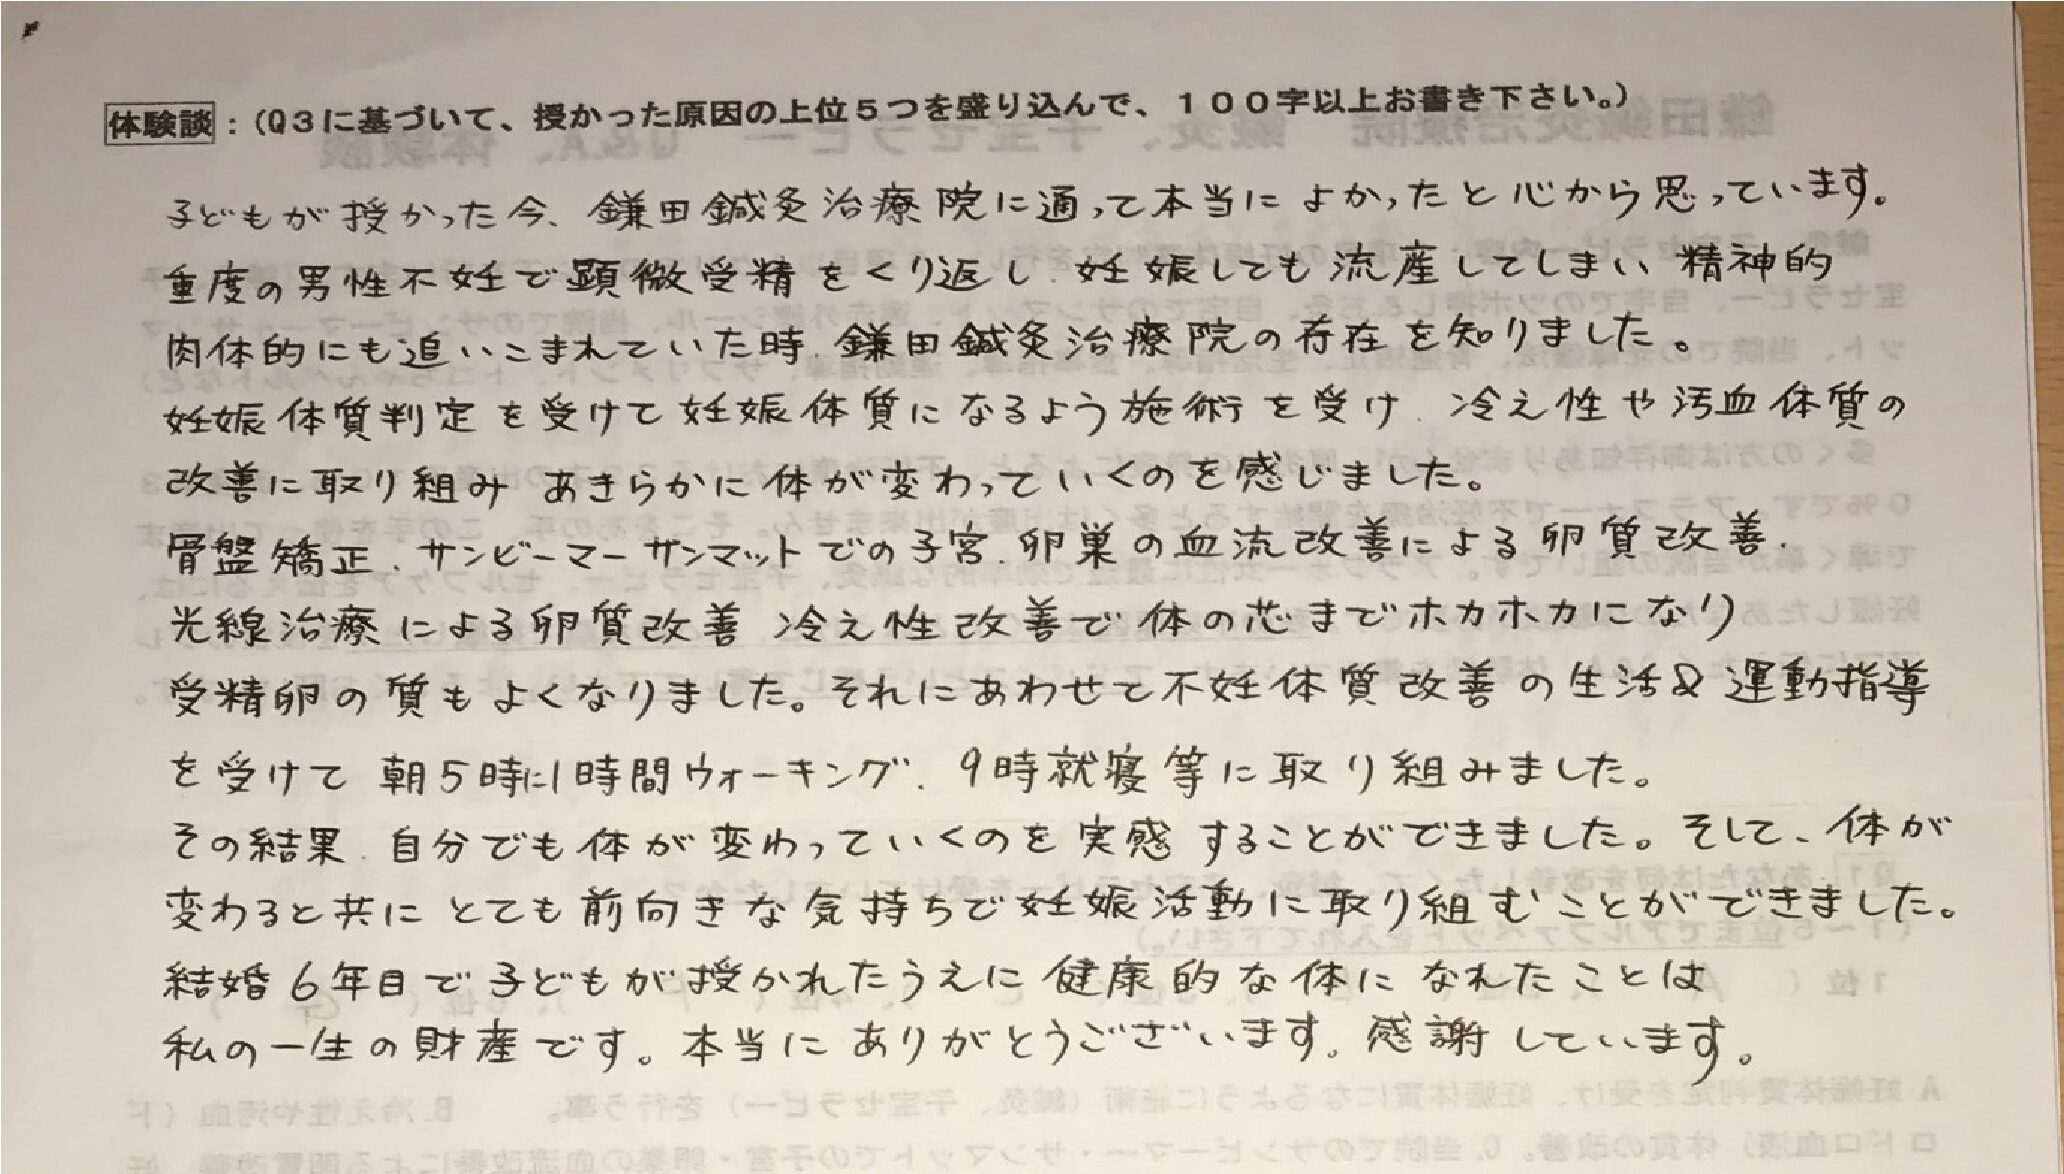 体験談：(Q3に基づいて、授かった原因の上位5つを盛り込んで、100字以上お書き下さい。)
子どもが授かった今、鎌田鍼灸治療院に通って本当によかったと心から思っています。
重度の男性不妊で顕微受精をくり返し、妊娠しても流産してしまい 精神的
肉体的にも追いこまれていた時、鎌田鍼灸治療院の存在を知りました。
妊娠体質判定を受けて妊娠体質になるよう施術を受け、冷え性や汚血体質の
改善に取り組み あきらかに体が変わっていくのを感じました。
骨盤矯正、サンビーマーサンマットでの子宮、卵巣の血流改善による卵質改善、
光線治療による卵質改善 冷え性改善で体の芯までホカホカになり
受精卵の質もよくなりました。それにあわせて不妊体質改善の生活&運動指導
を受けて 朝5時に1時間ウォーキング、9時就寝等に取り組みました。
その結果、自分でも体が変わっていくのを実感することができました。そして、体が
変わると共にとても前向きな気持ちで妊娠活動に取り組むことができました。
結婚6年目で子どもが授かれたうえに健康的な体になれたことは
私の一生の財産です。本当にありがとうございます。感謝しています。